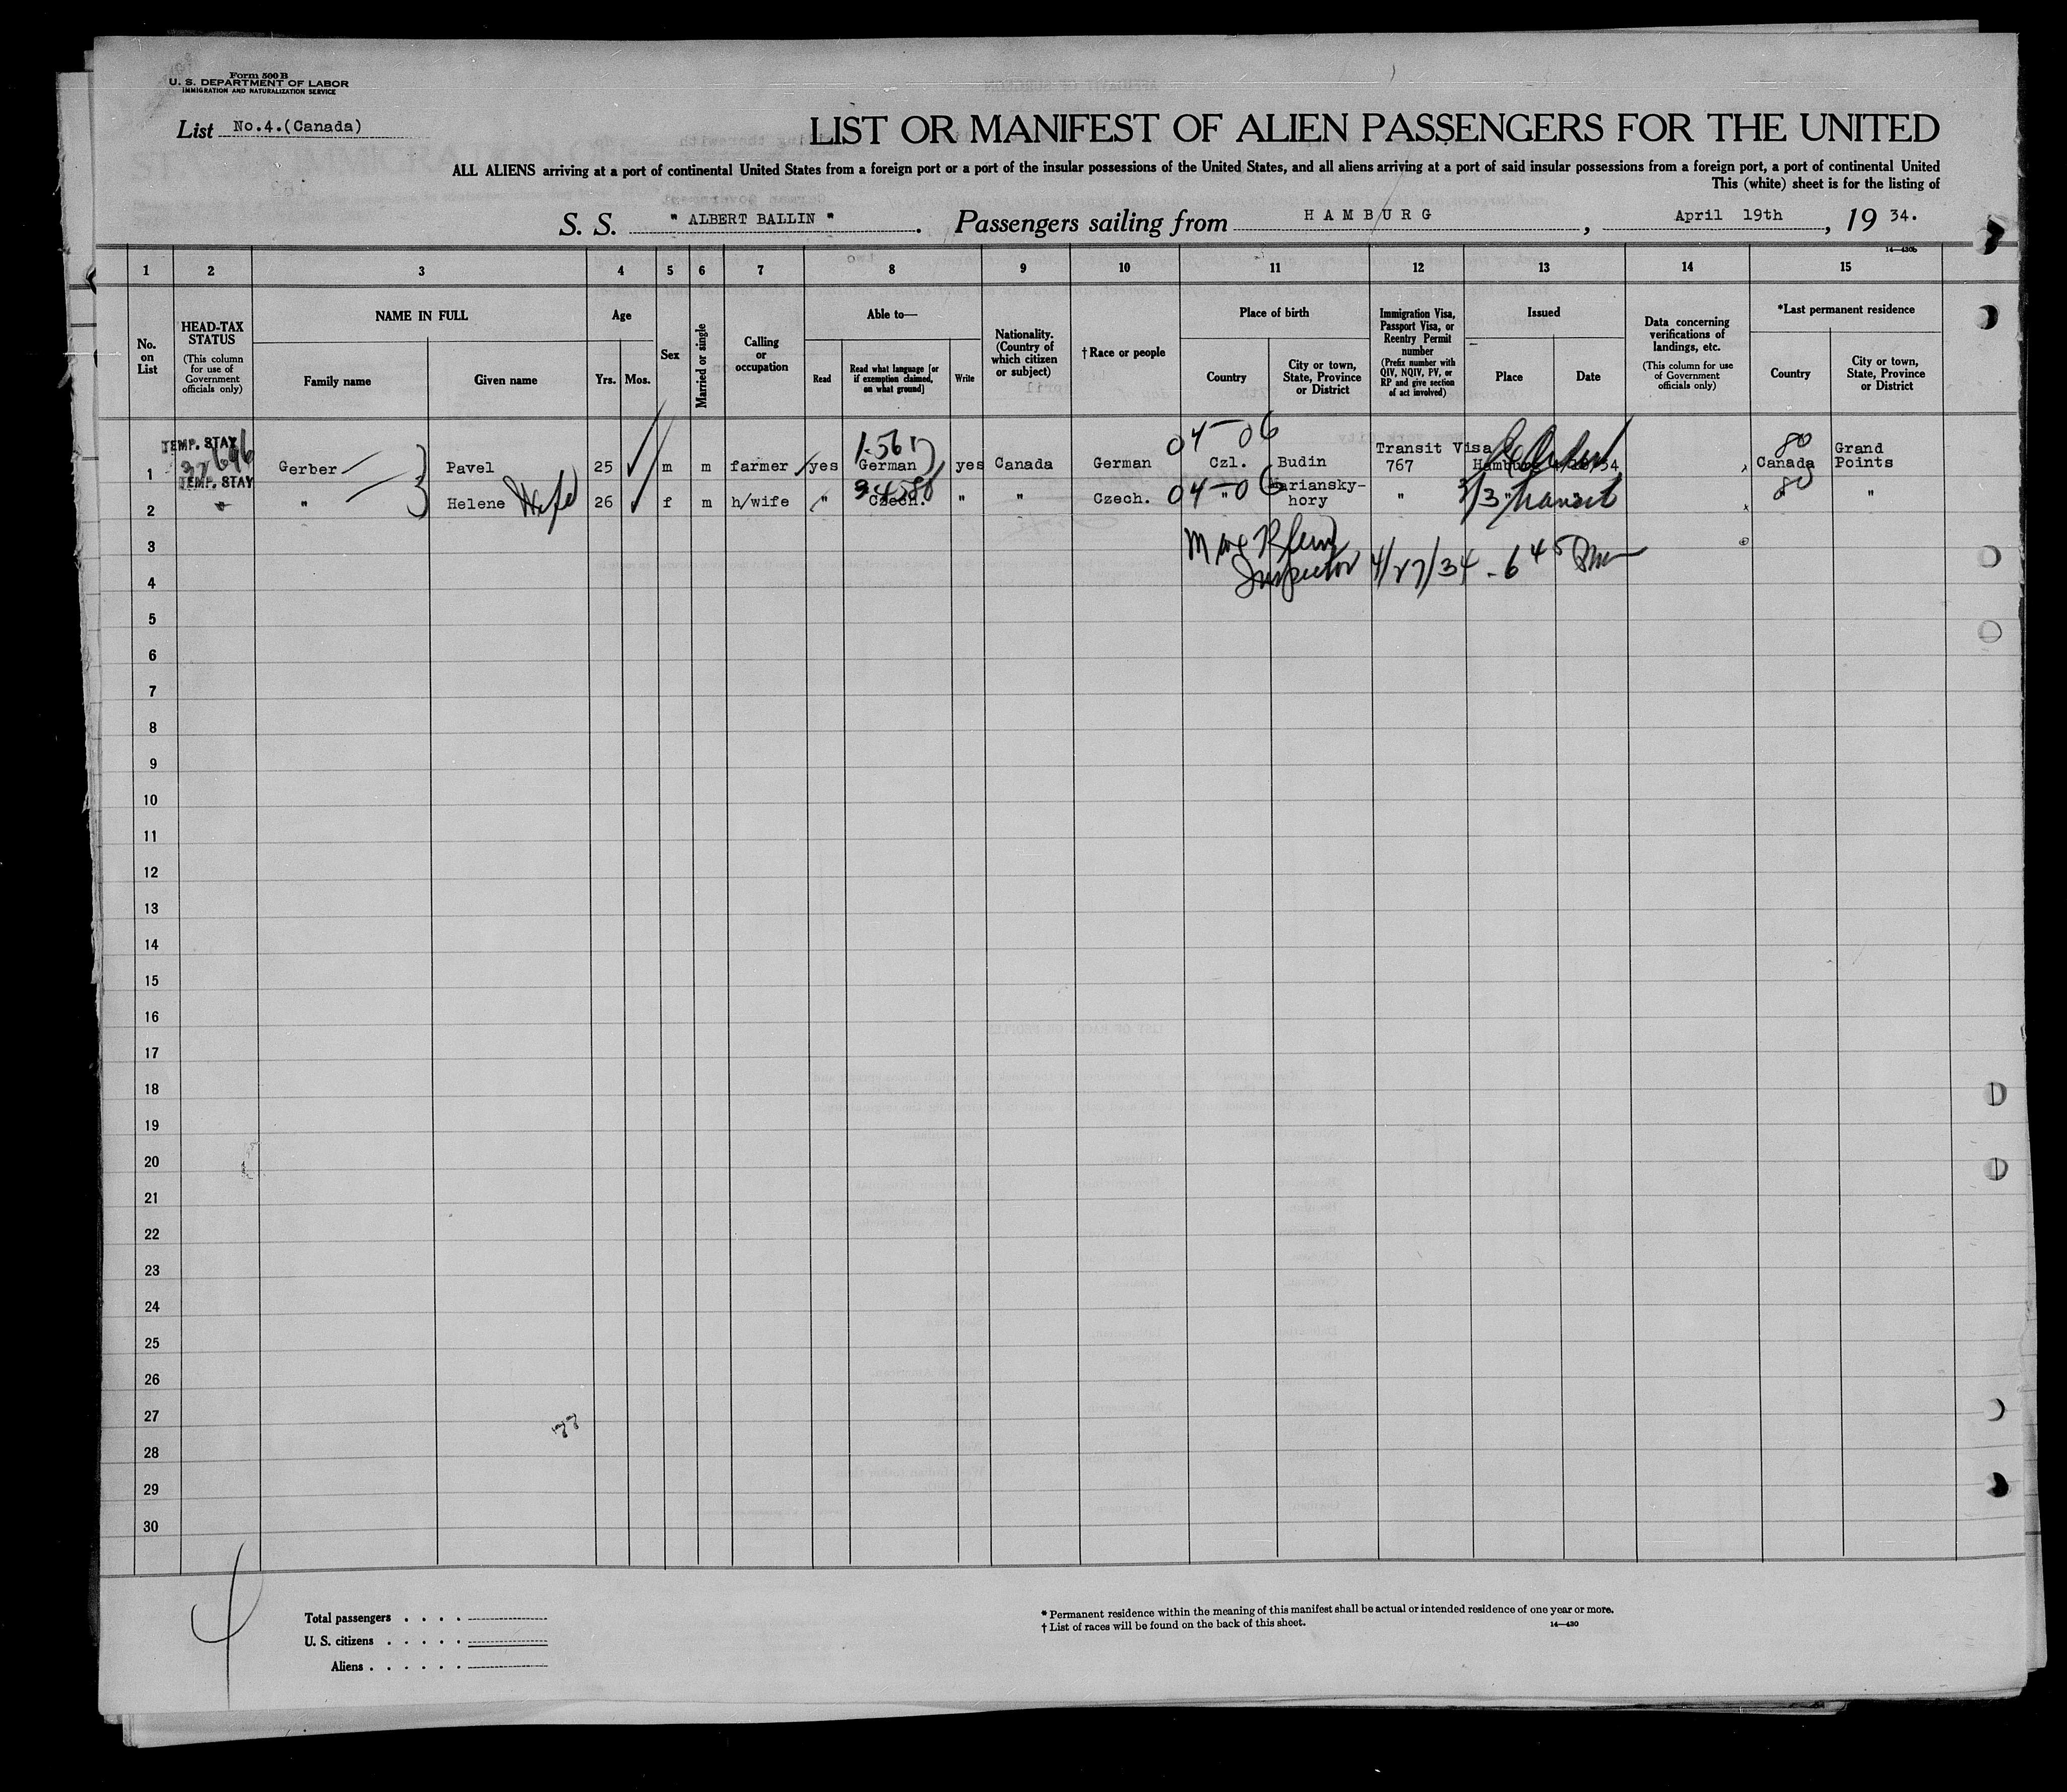 Form 500 B
U. S. DEPARTMENT OF LABOR
IMMIGRATION AND NATURALIZATION SERVICE
List No.4.(Canada)
LIST OR MANIFEST OF ALIEN PASSENGERS FOR THE UNITED
ALL ALIENS arriving at a port of continental United States from a foreign port or a port of the insular possessions of the United States, and all aliens arriving at a port of said insular possessions from a foreign port, a port of continental United
This (white) sheet is for the listing of
S. S. " ALBERT BALLIN ". Passengers sailing from HAMBURG, April 19th, 19 34.
14—430b
1 2 3 4 5 6 7 8 9 10 11 12 13 14 15
No. on List
HEAD-TAX STATUS
(This column for use of Government officials only)
NAME IN FULL
Family name
Given name
Age
Yrs.
Mos.
Sex
Married or single
Calling or occupation
Able to—
Read
Read what language [or if exemption claimed, on what ground]
Write
Nationality. (Country of which citizen or subject)
† Race or people
Place of birth
Country
City or town, State, Province or District
Immigration Visa, Passport Visa, or Reentry Permit number
(Prefix number with QIV, NQIV, PV, or RP and give section of act involved)
Issued
Place
Date
Data concerning verifications of landings, etc.
(This column for use of Government officials only)
*Last permanent residence
Country
City or town, State, Province or District
04-06
TEMP. STAY
Transit Visa
80
Grand
1 Gerber Pavel 25 m m farmer yes German yes Canada German Czl. Budin 767 Hamburg Canada Points
TEMP. STAY
04-06
Mariansky-
80
2 " Helene Wife 26 f m h/wife " Czech. " " Czech. " hory " " Transit " "
3
Inspector 4/27/34 - 6 45
4
5
6
7
8
9
10
11
12
13
14
15
16
17
18
19
20
21
22
23
24
25
26
27
28
29
30
4
Total passengers . . . .
U. S. citizens . . . . .
Aliens . . . . . .
* Permanent residence within the meaning of this manifest shall be actual or intended residence of one year or more.
† List of races will be found on the back of this sheet.
14—430